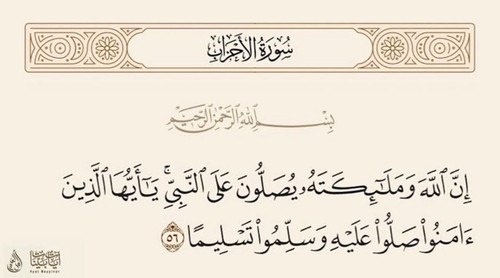 سُورَةُ الأَحْزَابِ
بِسْمِ اللَّهِ الرَّحْمَٰنِ الرَّحِيمِ
إِنَّ ٱللَّهَ وَمَلَٰٓئِكَتَهُۥ يُصَلُّونَ عَلَى ٱلنَّبِيِّۚ يَٰٓأَيُّهَا ٱلَّذِينَ
ءَامَنُوا۟ صَلُّوا۟ عَلَيْهِ وَسَلِّمُوا۟ تَسْلِيمًا ٥٦
آيات بينات
Ayat Bayyinat